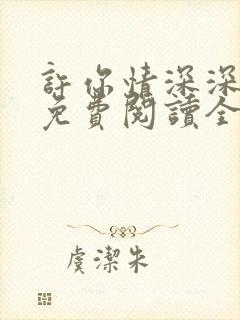 許你情深深
免費閱讀全
虞潔朱